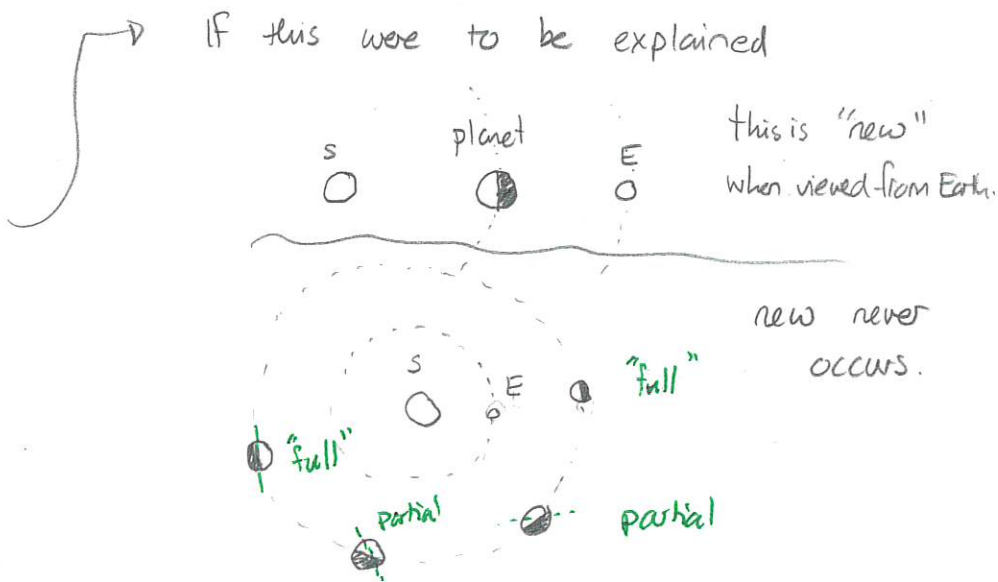 If this were to be explained
planet
S
E
this is "new"
when viewed from Earth.
new never
occurs.
S
E
"full"
"full"
partial
partial